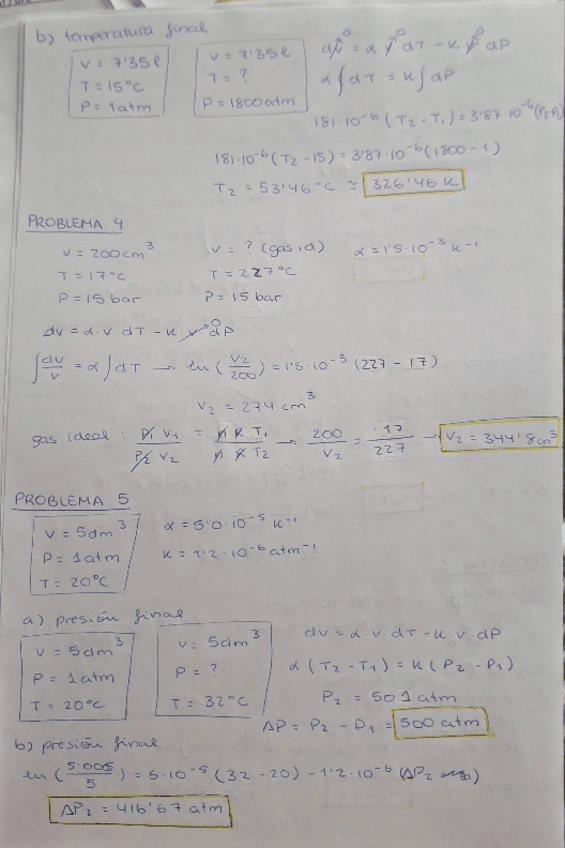 b) temperatura final
V = 7'35 l
T = 15°C
P = 1 atm
V = 7'35 l
T = ?
P = 1800 atm
dV⁰ = α · V dT - K V dP
α ∫ dT = K ∫ dP
181·10⁻⁶ (T₂ - T₁) = 3'87·10⁻⁶ (P₂-P₁)
181·10⁻⁶ (T₂ - 15) = 3'87·10⁻⁶ (1800 - 1)
T₂ = 53'46 °C ≃ 326'46 K
PROBLEMA 4
V = 200 cm³
T = 17°C
P = 15 bar
V = ? (gas id)
T = 227°C
P = 15 bar
α = 1'5·10⁻³ K⁻¹
dV = α · V dT - K V · dP⁰
∫ dV/V = α ∫ dT → ln (V₂/200) = 1'5·10⁻³ (227 - 17)
V₂ = 274 cm³
gas ideal : P₁ V₁ / P₂ V₂ = n R T₁ / n R T₂ → 200/V₂ = 17/227 → V₂ = 344'8 cm³
PROBLEMA 5
V = 5 dm³
P = 1 atm
T = 20°C
α = 5'0·10⁻⁵ K⁻¹
K = 1'2·10⁻⁶ atm⁻¹
a) presión final
V = 5 dm³
P = 1 atm
T = 20°C
V = 5 dm³
P = ?
T = 32°C
dV = α · V · dT - K · V · dP
α (T₂ - T₁) = K (P₂ - P₁)
P₂ = 501 atm
ΔP = P₂ - P₁ = 500 atm
b) presión final
ln (5'005/5) = 5·10⁻⁵ (32 - 20) - 1'2·10⁻⁶ (ΔP₂)
ΔP₂ = 416'67 atm